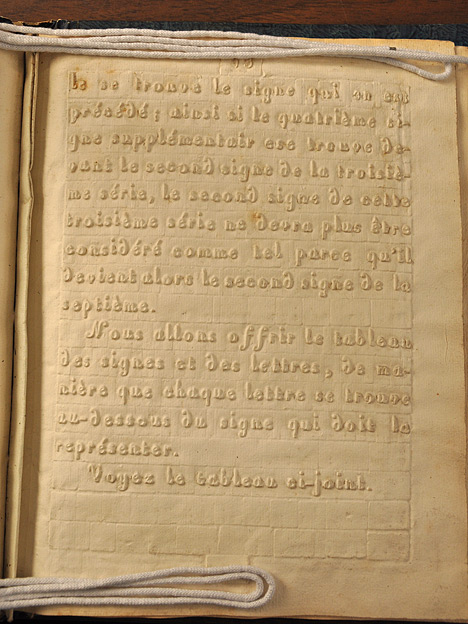 le se trouve le signe qui en est
précédé; ainsi si le quatrième si-
gne supplémentair ese trouve de-
vant le second signe de la troisiè-
me série, le second signe de cette
troisième série ne devra plus être
considéré comme tel parce qu'il
devient alors le second signe de la
septième.
Nous allons offrir le tableau
des signes et des lettres, de ma-
nière que chaque lettre se trouve
au-dessous du signe qui doit la
représenter.
Voyez le tableau ci-joint.